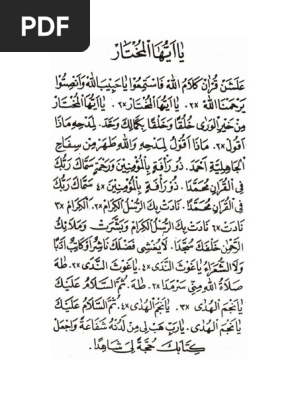 PDF
يَا أَيُّهَا الْمُخْتَارْ
عَلَشَنْ قُرْآنْ كَلَامُ اللهْ فَاسْتَمِعُوا يَاحَبِيبَ اللهْ وَانْصِتُوا
يَرْحَمْنَا اللهْ ٢x. يَا أَيُّهَا الْمُخْتَارْ ٢x. يَا أَيُّهَا الْمُخْتَارْ
مِنْ خَيْرِ الْوَرَى خُلُقًا وَخَلْقًا بِكَمَالِكَ وَعَدْ. لِمَدْحِهِ مَاذَا
أَقُولْ ٢x. مَاذَا أَقُولُ لِمَدْحِهِ وَاللهْ طَهَّرَ مِنْ سِفَاحِ
الْجَاهِلِيَّةِ أَحْمَدْ. ذُو رَأْفَةٍ بِالْمُؤْمِنِينَ وَرَحِمْ سَمَّاكَ رَبُّكَ
فِي الْقُرْآنِ مُحَمَّدًا. ذُو رَأْفَةٍ بِالْمُؤْمِنِينَ ٤x سَمَّاكَ رَبُّكَ
فِي الْقُرْآنِ مُحَمَّدًا. نَادَتْ بِكَ الرُّسُلُ الْكِرَامْ ٢x. الْكِرَامْ ٣x
نَادَتْ ٢x نَادَتْ بِكَ الرُّسُلُ الْكِرَامْ وَبَشَّرَتْ وَمَلَائِكُ
الرَّحْمٰنْ خَلْفَكَ سُجَّدًا. لَايُنْشِى فَضْلَكَ نَاثِرٌ أَوْكَاتِبٌ أَدَبًا
وَلَا الشُّعَرَاءُ يَاغَوْثَ النَّدَى ٤x. يَاغَوْثَ النَّدَى ٢x. طٰهٰ
صَلَاةُ اللهْ مِنِّي سَرْمَدًا ٢x. طٰهٰ. ثُمَّ السَّلَامُ عَلَيْكَ
يَانَجْمَ الْهُدَى ٣x. يَانَجْمَ الْهُدَى ٤x. ثُمَّ السَّلَامُ عَلَيْكَ
يَانَجْمَ الْهُدَى. يَارَبِّ هَبْ لِي مِنْ لَدُنْهُ شَفَاعَةً وَاجْعَلْ
كِتَابَكَ حُجَّةً لِي شَاهِدًا.